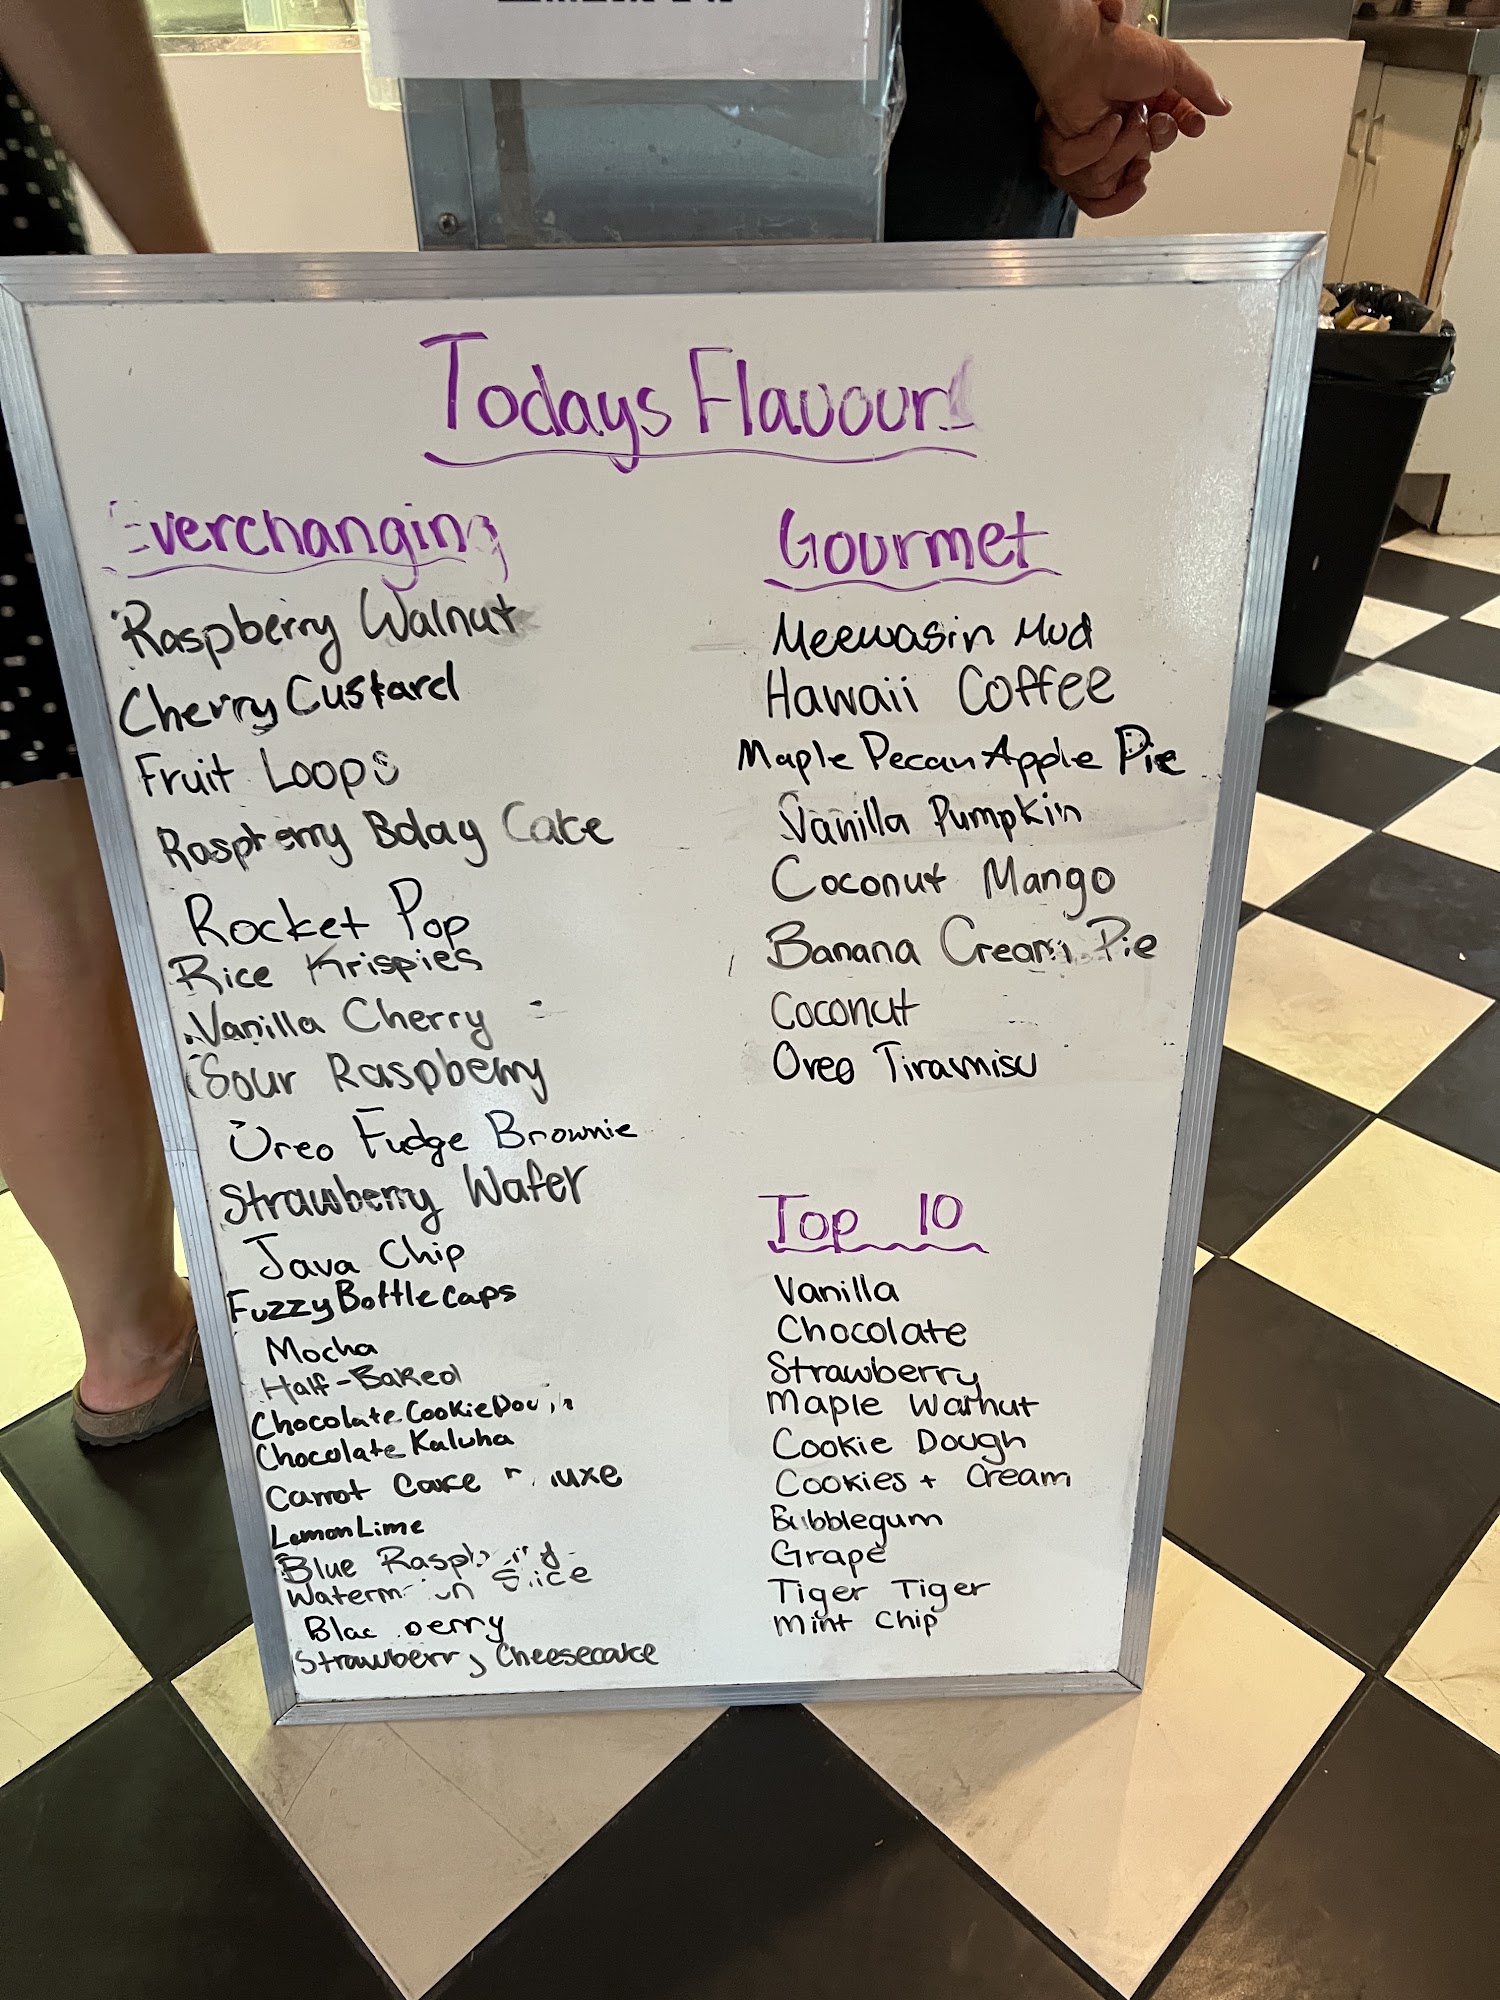 Todays Flavours
Everchanging
Raspberry Walnut
Cherry Custard
Fruit Loops
Raspberry Bday Cake
Rocket Pop
Rice Krispies
Vanilla Cherry
Sour Raspberry
Oreo Fudge Brownie
Strawberry Wafer
Java Chip
Fuzzy Bottlecaps
Mocha
Half-Baked
Chocolate Cookie Dough
Chocolate Kaluha
Carrot Cake
Lemon Lime
Blue Raspberry
Watermelon Slice
Blackberry
Strawberry Cheesecake
Gourmet
Meewasin Mud
Hawaii Coffee
Maple Pecan Apple Pie
Vanilla Pumpkin
Coconut Mango
Banana Cream Pie
Coconut
Oreo Tiramisu
Top 10
Vanilla
Chocolate
Strawberry
Maple Walnut
Cookie Dough
Cookies + Cream
Bubblegum
Grape
Tiger Tiger
Mint Chip